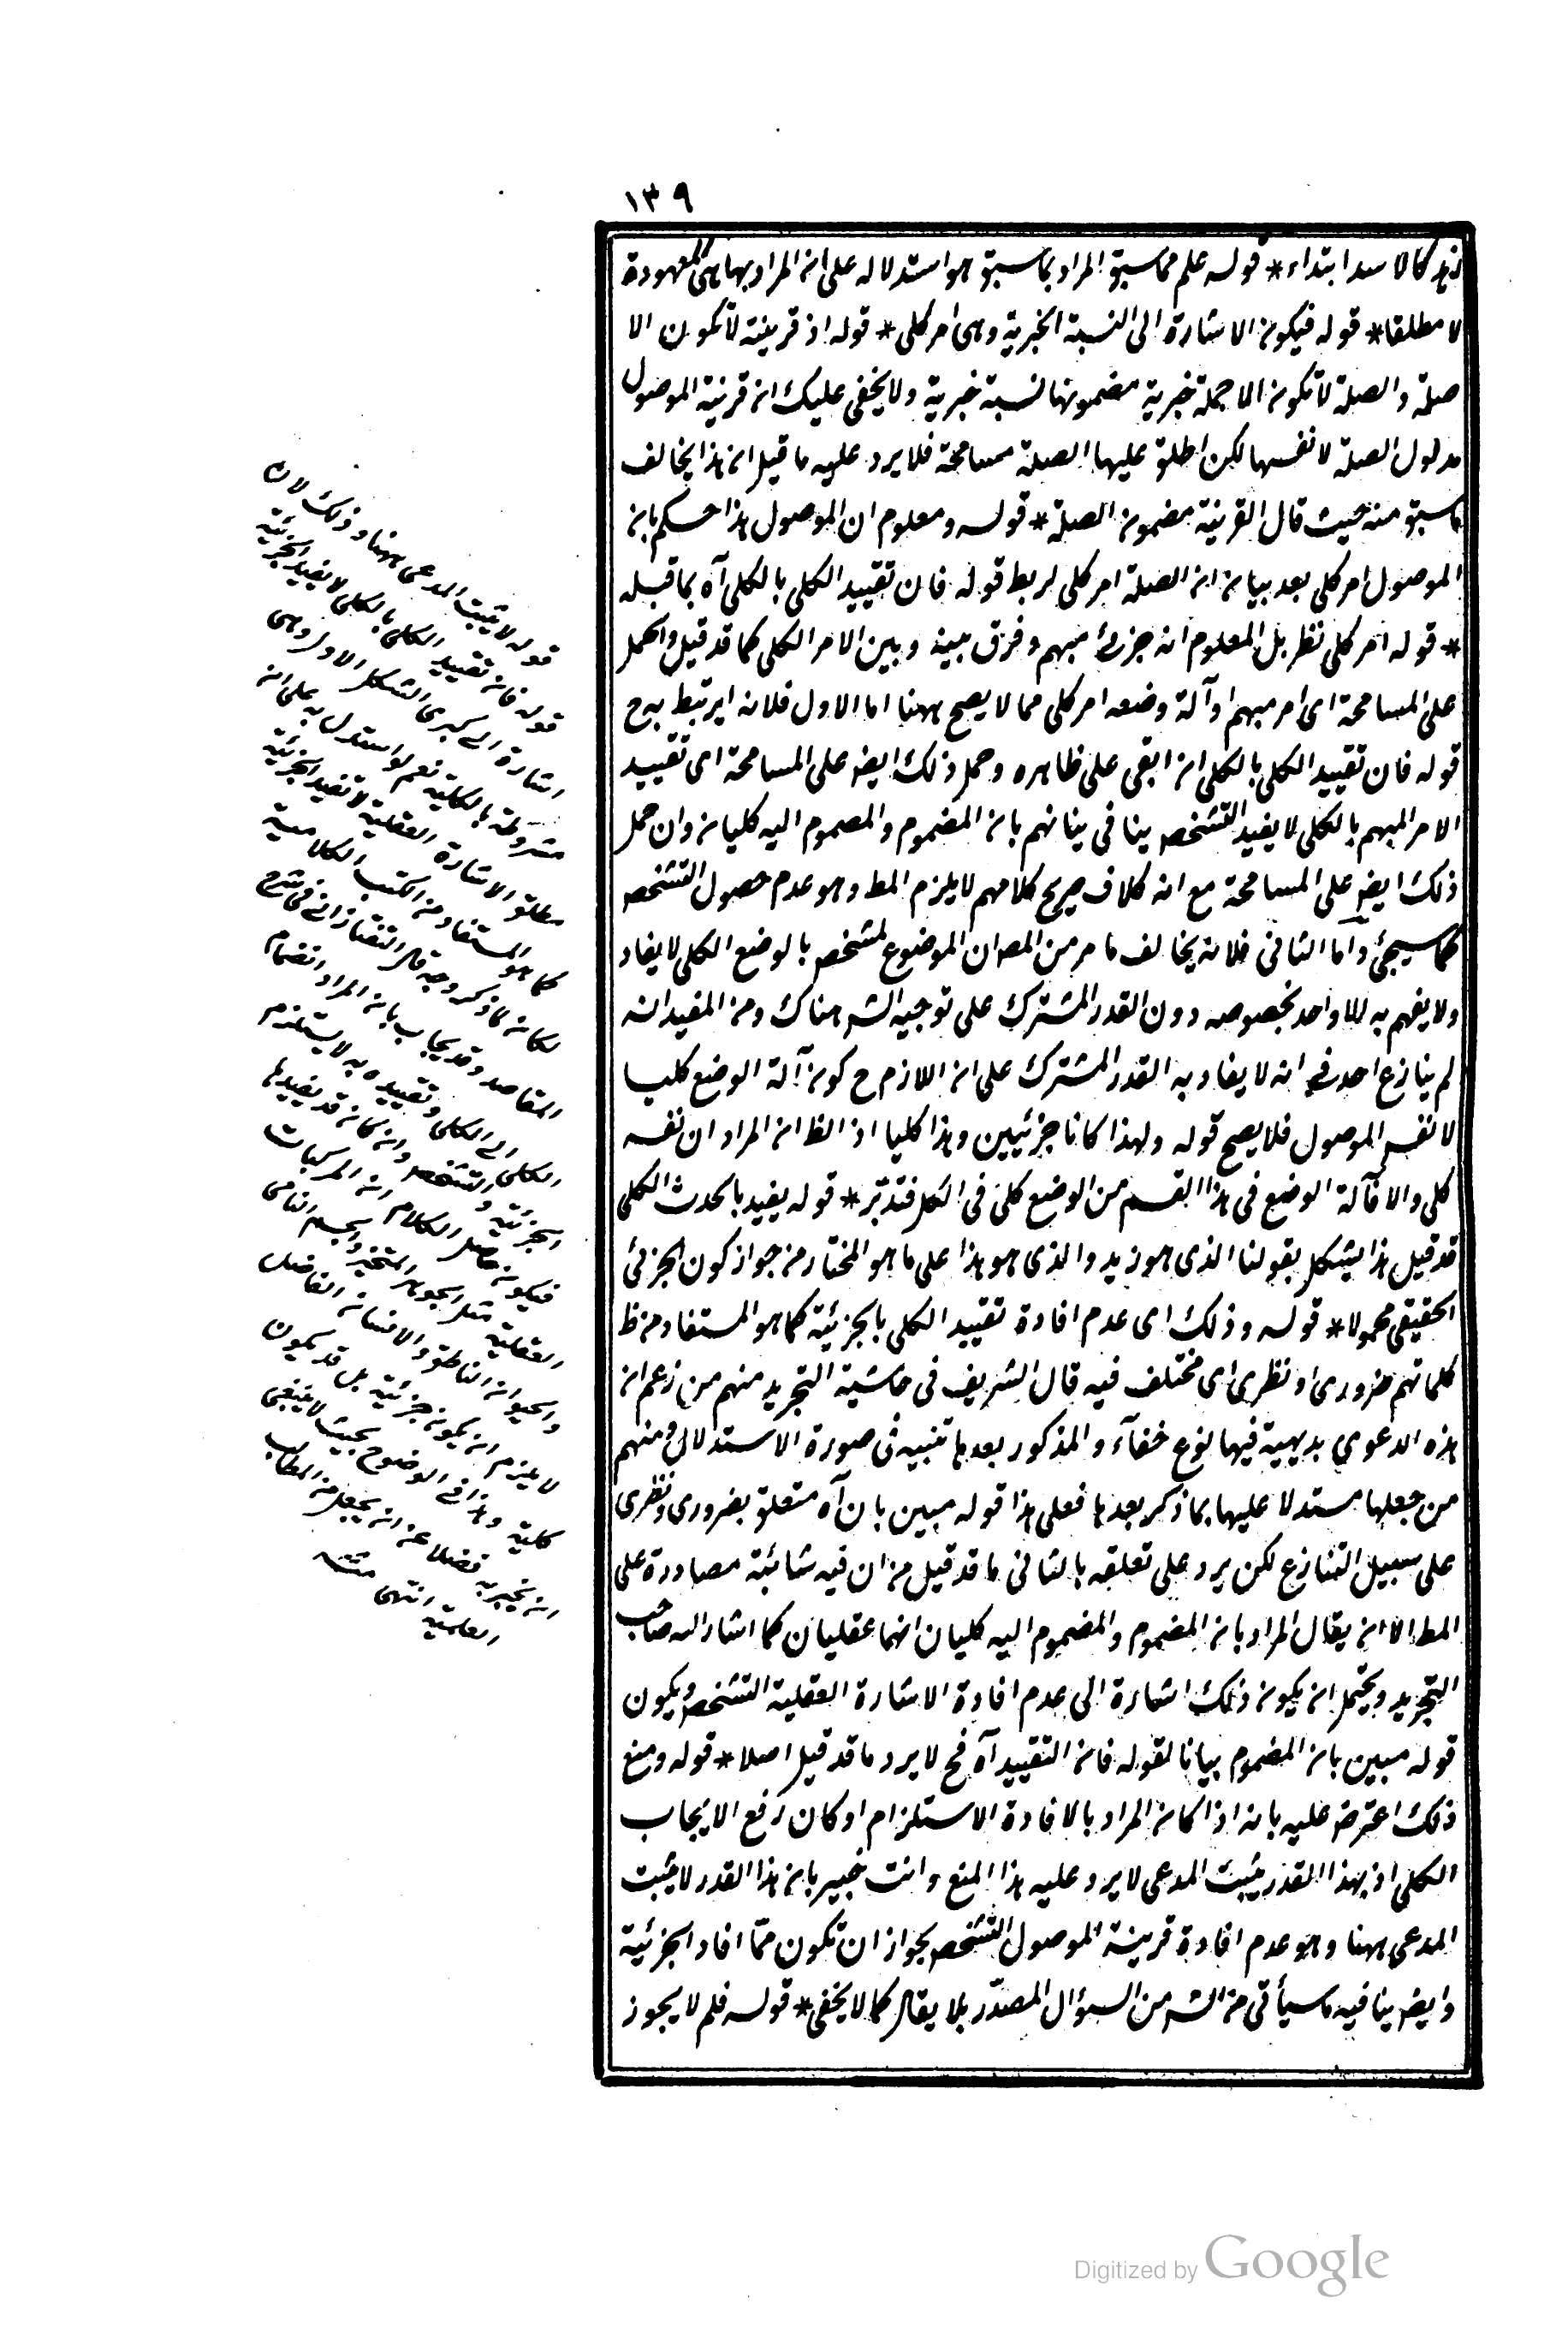 ١٣٩
كالاسد ابتداء * قوله علم مما سبق المراد بما سبق هو استدلاله على ان المراد بها هى المعهودة
لا مطلقا * قوله فيكون الاشارة الى النسبة الخبرية وهى امر كلى * قوله اذ قرينة لا تكون الا
صلة والصلة لا تكون الا جملة خبرية مضمونها نسبة خبرية ولا يخفى عليك ان قرينة الموصول
مدلول الصلة لا نفسها لكن اطلق عليها الصلة مسامحة فلا يرد عليه ما قيل ان هذا يخالف
ما سبق منه حيث قال القرينة مضمون الصلة * قوله ومعلوم ان الموصول هذا حكم بان
الموصول امر كلى بعد بيان ان الصلة امر كلى لربط قوله فان تقييد الكلى بالكلى آه بما قبله
* قوله امر كلى نظر بل المعلوم انه جزئ مبهم وفرق بينه وبين الامر الكلى كما قد قيل والحمل
على المسامحة اى امر مبهم او آلة وضعه امر كلى مما لا يصح ههنا اما الاول فلانه ان يرتبط به ح
قوله فان تقييد الكلى بالكلى ان ابقى على ظاهره وحمل ذلك ايض على المسامحة اى تقييد
الامر المبهم بالكلى لا يفيد التشخص ينافى بيانهم بان المضموم والمضموم اليه كليان وان حمل
ذلك ايض على المسامحة مع انه خلاف صريح كلامهم لا يلزم المط وهو عدم حصول التشخص
كما سيجئ واما الثانى فلانه يخالف ما مر من المص ان الموضوع لمشخص بالوضع الكلى لا يفاد
ولا يفهم به الا واحد بخصوصه دون القدر المشترك على توجيه الش هناك ومن المفيد انه
لم ينازع احد فى انه لا يفاد به القدر المشترك على ان اللازم ح كون آلة الوضع كليا
لا نفس الموصول فلا يصح قوله ولهذا كانا جزئيين وهذا كليا اذ الظ ان المراد ان نفسه
كلى والا فآلة الوضع فى هذا القسم من الوضع كلى فى الكل فتدبّر * قوله يفيد بالحدث الكلى
قد قيل هذا يشكل بقولنا الذى هو زيد والذى هو هذا على ما هو المختار من جواز كون الجزئى
الحقيقى محمولا * قوله وذلك اى عدم افادة تقييد الكلى بالجزئية كما هو المستفاد من ظ
كلماتهم ضرورى او نظرى اى مختلف فيه قال الشريف فى حاشية التجريد منهم من زعم ان
هذه الدعوى بديهية فيها نوع خفآء والمذكور بعدها تنبيه فى صورة الاستدلال ومنهم
من جعلها مستدلا عليها بما ذكر بعدها فعلى هذا قوله مبين بان آه متعلق بضرورى ونظرى
على سبيل التنازع لكن يرد على تعلقه بالثانى ما قد قيل من ان فيه شائبة مصادرة على
المط الا ان يقال المراد بان المضموم والمضموم اليه كليان انهما عقليان كما اشار اليه صاحب
التجريد ويحتمل ان يكون ذلك اشارة الى عدم افادة الاشارة العقلية التشخص ويكون
قوله مبين بان المضموم بيانا لقوله فان التقييد آه فح لا يرد ما قد قيل اصلا * قوله ومنع
ذلك اعترض عليه بانه اذا كان المراد بالافادة الاستلزام او كان رفع الايجاب
الكلى اذ بهذا القدر يثبت المدعى لا يرد عليه هذا المنع وانت خبير بان هذا القدر لا يثبت
المدعى ههنا وهو عدم افادة قرينة الموصول التشخص بجواز ان تكون ممّا افاد الجزئية
وايض ينافيه ما سيأتى من الش من السؤال المصدّر بلا يقال كما لا يخفى * قوله فلم لا يجوز
قوله لا يثبت المدعى ههنا وذلك لان
قوله فان تقييد الكلى بالكلى لا يفيد الجزئية
اشارة الى كبرى الشكل الاول وهى
مشروطة بالكلية نعم لو استدل به على ان
مطلق الاشارة العقلية لا تفيد الجزئية
كما هو المستفاد من الكتب الكلامية
لكان لما ذكر وجه قال التفتازانى فى شرح
المقاصد وقد يجاب بان المراد انضمام
الكلى الى الكلى وتقييده به لا يستلزم
الجزئية والتشخص وان كان قد يفيدها
فيكون حاصل الكلام ان المركبات
العقلية مثل الجوهر المتحيز والجسم النامى
والحيوان الناطق والانسان الفاضل
لا يلزم ان يكون جزئية بل قد يكون
كلية وهذا فى الوضوح بحيث لا ينبغى
ان يخبر به فضلا عن ان يجعل من المطالب
العلمية انتهى منه
Digitized by Google